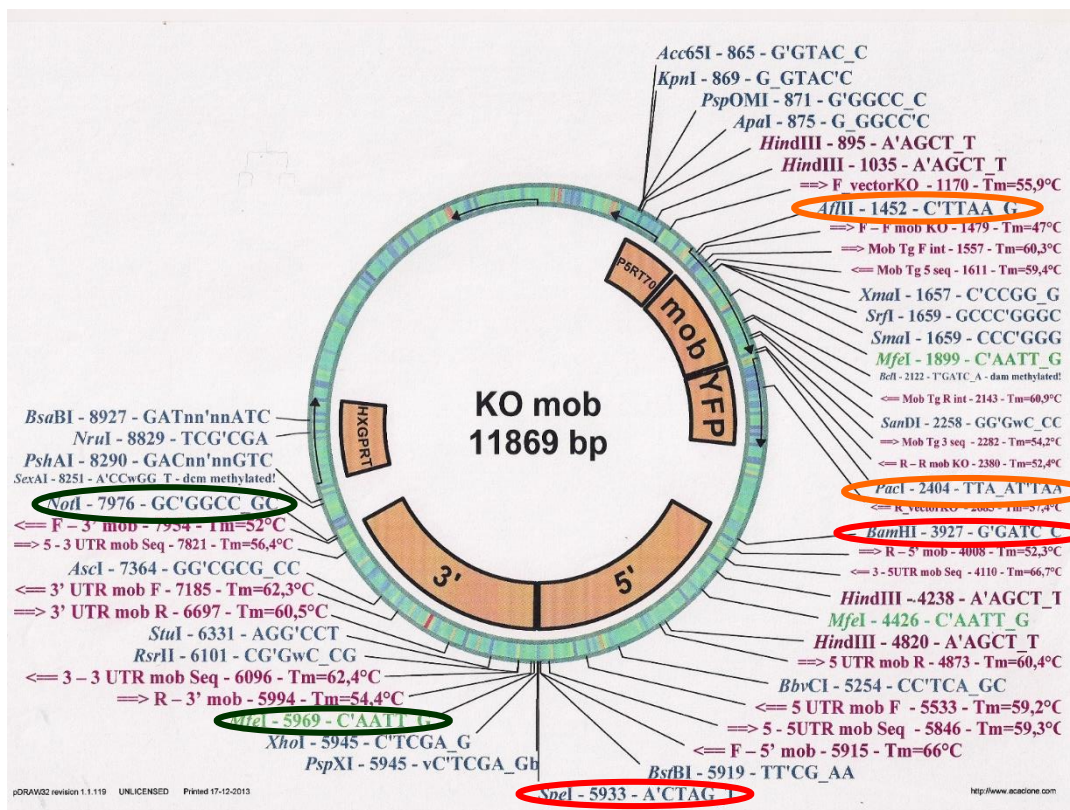 Acc65I - 865 - G'GTAC_C
KpnI - 869 - G_GTAC'C
PspOMI - 871 - G'GGCC_C
ApaI - 875 - G_GGCC'C
HindIII - 895 - A'AGCT_T
HindIII - 1035 - A'AGCT_T
==> F_vectorKO - 1170 - Tm=55,9°C
AflII - 1452 - C'TTAA_G
==> F – F mob KO - 1479 - Tm=47°C
==> Mob Tg F int - 1557 - Tm=60,3°C
<== Mob Tg 5 seq - 1611 - Tm=59,4°C
XmaI - 1657 - C'CCGG_G
SrfI - 1659 - GCCC'GGGC
SmaI - 1659 - CCC'GGG
MfeI - 1899 - C'AATT_G
BclI - 2122 - T'GATC_A - dam methylated!
<== Mob Tg R int - 2143 - Tm=60,9°C
SanDI - 2258 - GG'GwC_CC
==> Mob Tg 3 seq - 2282 - Tm=54,2°C
<== R – R mob KO - 2380 - Tm=52,4°C
PacI - 2404 - TTA_AT'TAA
<== R_vectorKO - 2685 - Tm=57,4°C
BamHI - 3927 - G'GATC_C
==> R – 5' mob - 4008 - Tm=52,3°C
<== 3 - 5UTR mob Seq - 4110 - Tm=66,7°C
HindIII - 4238 - A'AGCT_T
MfeI - 4426 - C'AATT_G
HindIII - 4820 - A'AGCT_T
==> 5 UTR mob R - 4873 - Tm=60,4°C
BbvCI - 5254 - CC'TCA_GC
<== 5 UTR mob F - 5533 - Tm=59,2°C
==> 5 - 5UTR mob Seq - 5846 - Tm=59,3°C
<== F – 5' mob - 5915 - Tm=66°C
BstBI - 5919 - TT'CG_AA
SpeI - 5933 - A'CTAG_T
PspXI - 5945 - vC'TCGA_Gb
XhoI - 5945 - C'TCGA_G
MfeI - 5969 - C'AATT_G
==> R – 3' mob - 5994 - Tm=54,4°C
<== 3 – 3 UTR mob Seq - 6096 - Tm=62,4°C
RsrII - 6101 - CG'GwC_CG
StuI - 6331 - AGG'CCT
==> 3' UTR mob R - 6697 - Tm=60,5°C
<== 3' UTR mob F - 7185 - Tm=62,3°C
AscI - 7364 - GG'CGCG_CC
==> 5 - 3 UTR mob Seq - 7821 - Tm=56,4°C
<== F – 3' mob - 7954 - Tm=52°C
NotI - 7976 - GC'GGCC_GC
SexAI - 8251 - A'CCwGG_T - dcm methylated!
PshAI - 8290 - GACnn'nnGTC
NruI - 8829 - TCG'CGA
BsaBI - 8927 - GATnn'nnATC
P5RT70
mob
YFP
5'
3'
HXGPRT
KO mob
11869 bp
pDRAW32 revision 1.1.119 UNLICENSED Printed 17-12-2013
http://www.acaclone.com